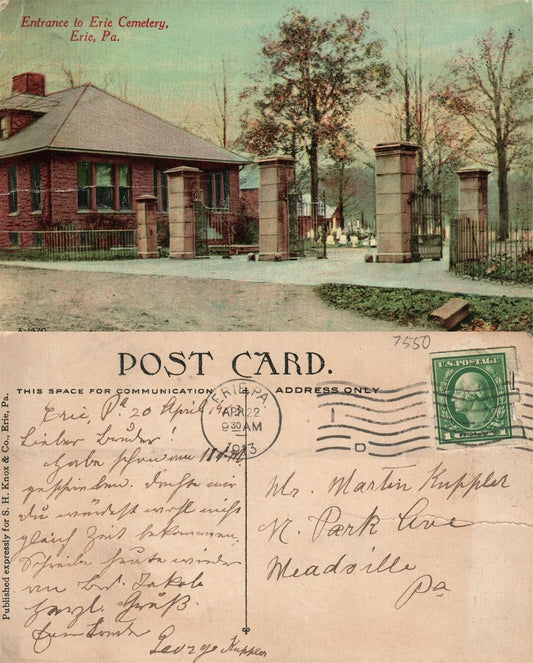 Entrance to Erie Cemetery,
Erie, Pa.
A-1420
7550
POST CARD.
THIS SPACE FOR COMMUNICATION
ADDRESS ONLY
Published expressly for S. H. Knox & Co., Erie, Pa.
ERIE, PA.
APR 22
9 30 AM
1913
U.S. POSTAGE
1
D
Erie, Pa 20 April
Lieber Bruder!
Habe schon am
geschrieben. Dachte mir
du würdest wohl nicht
gleich Zeit bekommen.
Schreibe heute wieder
an Jakob
Herzl. Gruß
George Kuppler
Mr. Martin Kuppler
N. Park Ave
Meadsville
Pa